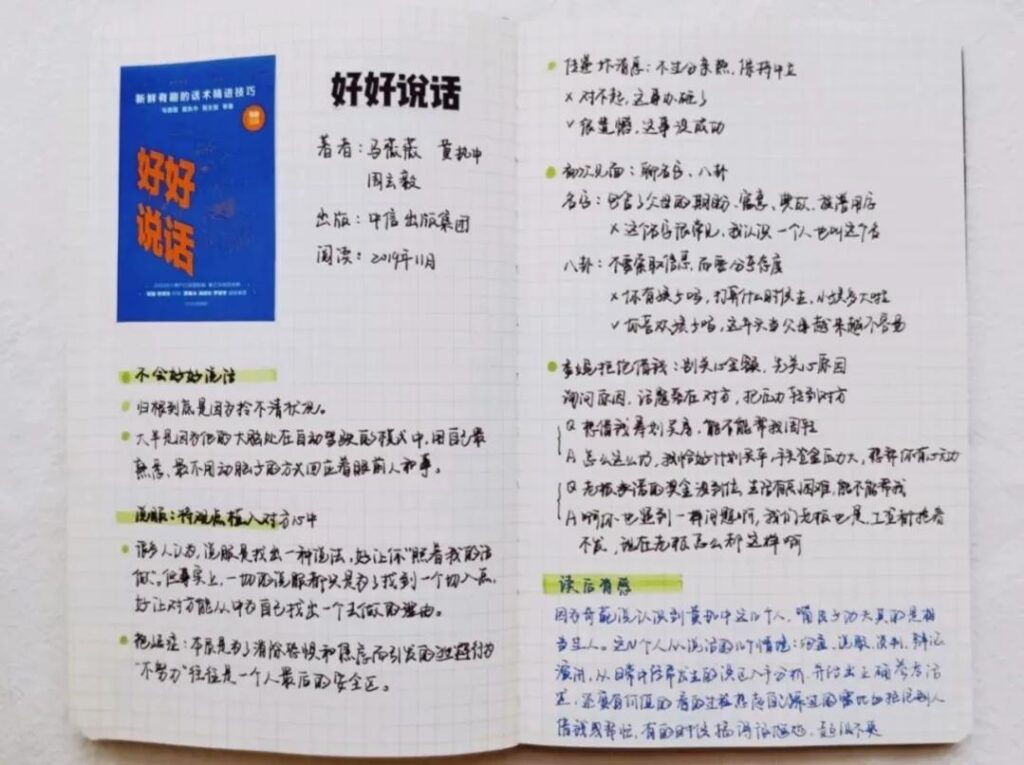 新鲜有趣的话术精进技巧
好好
说话
好好说话
著者：马薇薇 黄执中
周玄毅
出版：中信出版集团
阅读：2019年11月
不会好好说话
归根到底是因为拎不清状况。
大半是因为他的大脑处在自动驾驶的模式中，用自己最
熟悉、最不用动脑子的方式回应着眼前人和事。
说服：将观点植入对方心中
许多人认为，说服是找出一种说法，好让你"照着我的话
做"。但事实上，一切的说服都只是为了找到一个切入点，
好让对方能从中为自己找出一个去做的理由。
拖延症：本质是为了消除恐惧和焦虑而引发的逃避行为
"不努力"往往是一个人最后的安全区。
传递坏消息：不过分亲热，保持中立
× 对不起，这事办砸了
√ 很遗憾，这事没成功
初次见面：聊名字、八卦
名字：包含了父母的期盼、寓意、典故、故善用后
× 这个名字很常见，我认识一个人也叫这个名
八卦：不要索取信息，而要分享态度
× 你有孩子吗，打算什么时候生，小孩多大啦
√ 你喜欢孩子吗，这年头当父母越来越不容易
拒绝借钱：别关心金额，先关心原因
询问原因，话题要在对方，把压力转到对方
Q 想借钱筹划买房，能不能帮我周转
A 怎么这么巧，我恰好计划买车，手头资金压力大，想帮你有心无力
Q 老板承诺的奖金没到位，生活有点困难，能不能帮我
A 啊你也遇到一样问题啊，我们老板也是，工资都拖着
不发，现在老板怎么都这样啊
读后有感
因为奇葩说认识到黄执中这几个人，嘴皮子功夫真的是相
当惊人。这几个人从说话的几个情境：沟通、说服、谈判、辩论
演讲，从日常中经常发生的误区入手分析，并给出正确参考话
术，还蛮有价值的
借钱或帮忙，有的时候